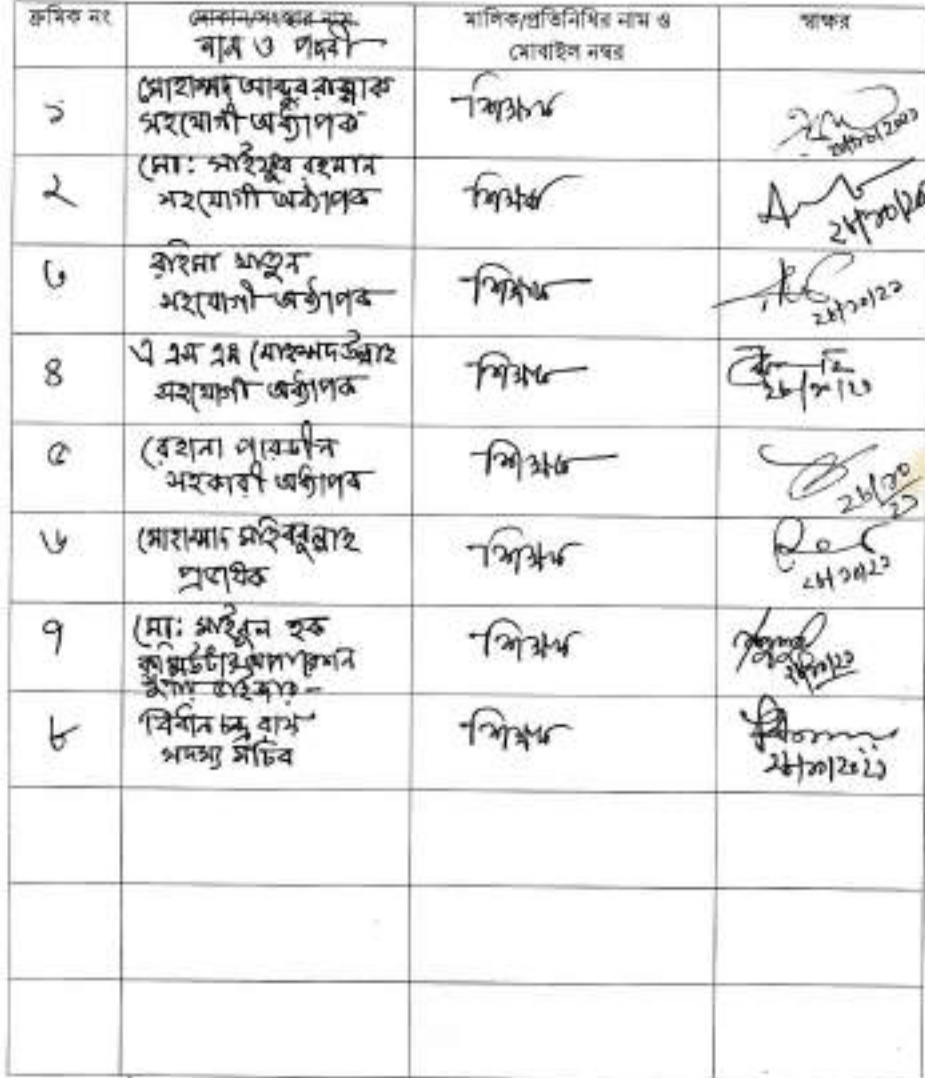 ক্রমিক নং
দোকান/সংস্থার নাম
মালিক/প্রতিনিধির নাম ও
মোবাইল নম্বর
স্বাক্ষর
নাম ও পদবী
১
মোহাম্মদ আব্দুর রাজ্জাক
সহযোগী অধ্যাপক
শিক্ষক
২
মো: সাইফুর রহমান
সহযোগী অধ্যাপক
শিক্ষক
৩
রহিমা খাতুন
সহযোগী অধ্যাপক
শিক্ষক
৪
এ এম এম মোহাম্মদ উল্লাহ
সহযোগী অধ্যাপক
শিক্ষক
৫
রেহানা পারভীন
সহকারী অধ্যাপক
শিক্ষক
৬
মোহাম্মদ
প্রভাষক
শিক্ষক
৭
মো: হক
কম্পিউটার অপারেশন
সুপার ভাইজার
শিক্ষক
৮
চন্দ্র রায়
সদস্য সচিব
শিক্ষক